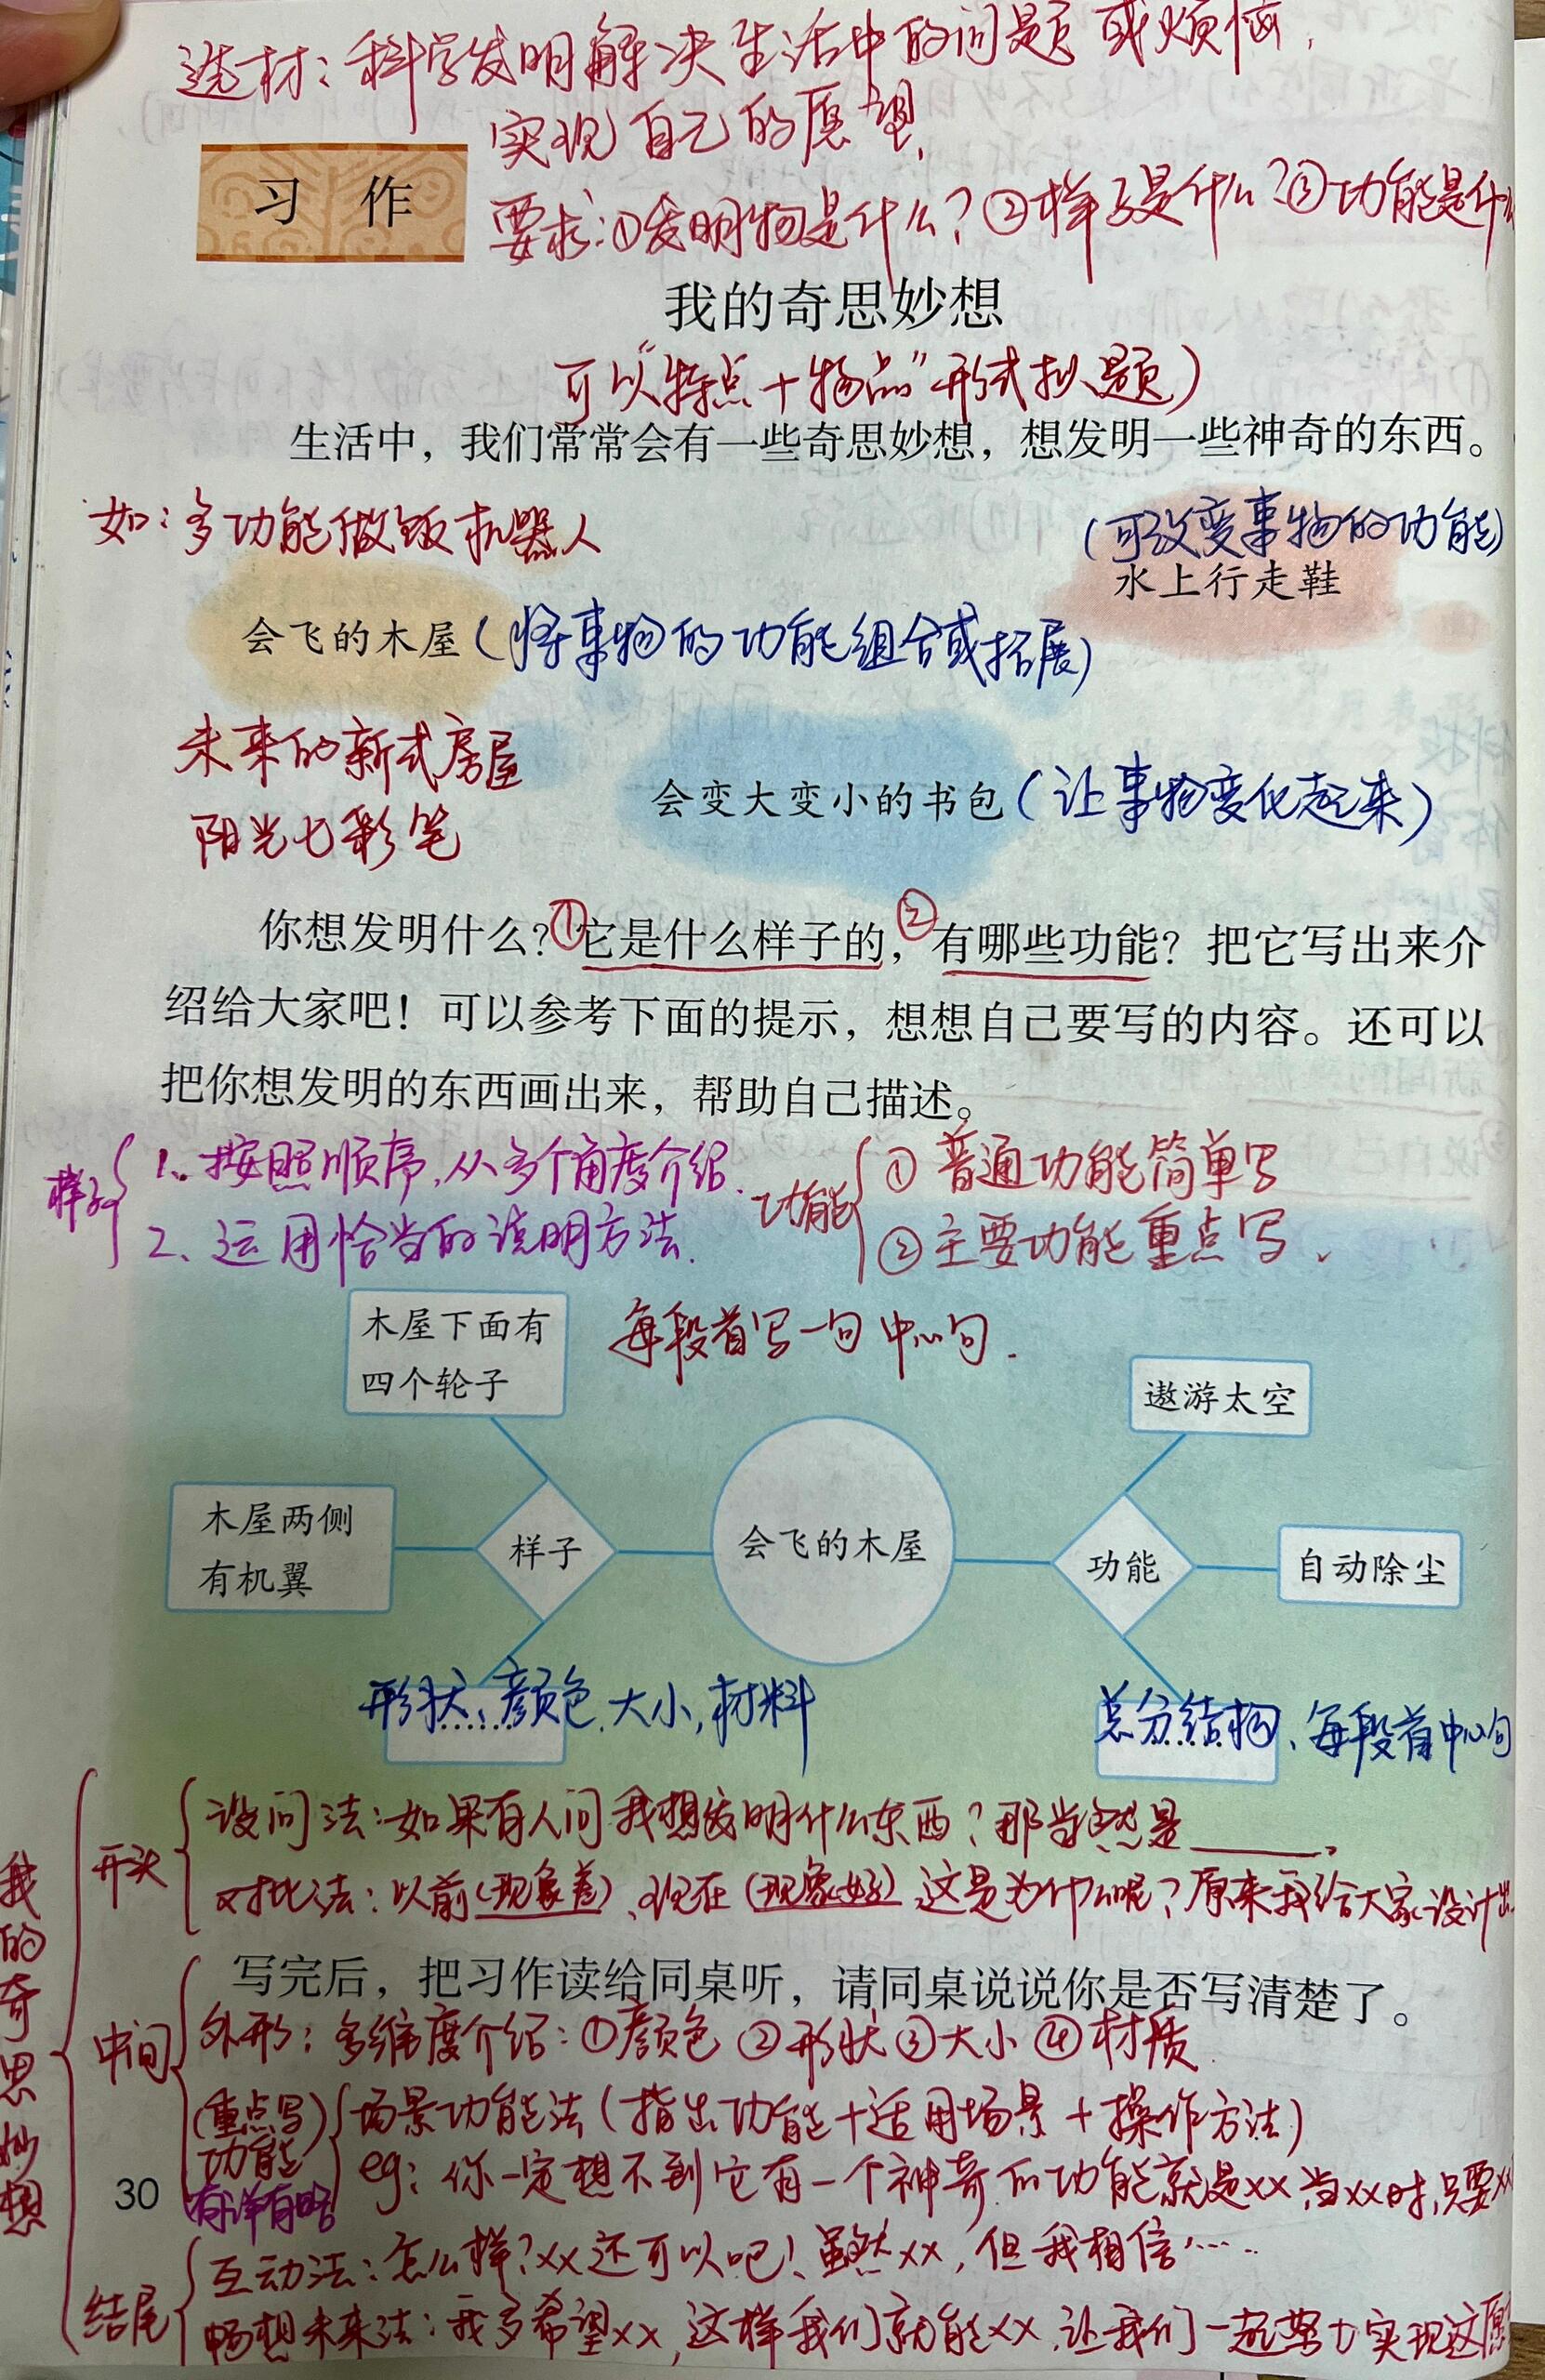 选材：科学发明解决生活中的问题或烦恼，
实现自己的愿望，
要求：①发明物是什么？②样子是什么？③功能是什
习 作
我的奇思妙想
可以“特点＋物品”形式拟题）
生活中，我们常常会有一些奇思妙想，想发明一些神奇的东西。
如：多功能做饭机器人
（可改变事物的功能）
水上行走鞋
会飞的木屋（将事物的功能组合或拓展）
未来的新式房屋
阳光七彩笔
会变大变小的书包（让事物变化起来）
你想发明什么？①它是什么样子的，②有哪些功能？把它写出来介
绍给大家吧！可以参考下面的提示，想想自己要写的内容。还可以
把你想发明的东西画出来，帮助自己描述。
样子
1、按照顺序，从多个角度介绍．
2、运用恰当的说明方法．
功能
①普通功能简单写
②主要功能重点写．
每段首写一句中心句．
木屋下面有
四个轮子
木屋两侧
有机翼
样子
会飞的木屋
功能
遨游太空
自动除尘
形状、颜色、大小，材料
……
总分结构、每段首中心句
……
我的奇思妙想
开头
设问法：如果有人问我想发明什么东西？那当然是______．
对比法：以前（现象差）、现在（现象好）这是为什么呢？原来我给大家设计出
写完后，把习作读给同桌听，请同桌说说你是否写清楚了。
中间
外形：多维度介绍：①颜色②形状③大小④材质．
（重点写）
功能
有详有略
场景功能法（指出功能＋适用场景＋操作方法）
eg：你一定想不到它有一个神奇的功能就是xx当xx时，只要xx
30
结尾
互动法：怎么样？xx还可以吧！虽然xx，但我相信……
畅想未来法：我多希望xx，这样我们就能xx，让我们一起努力实现这愿